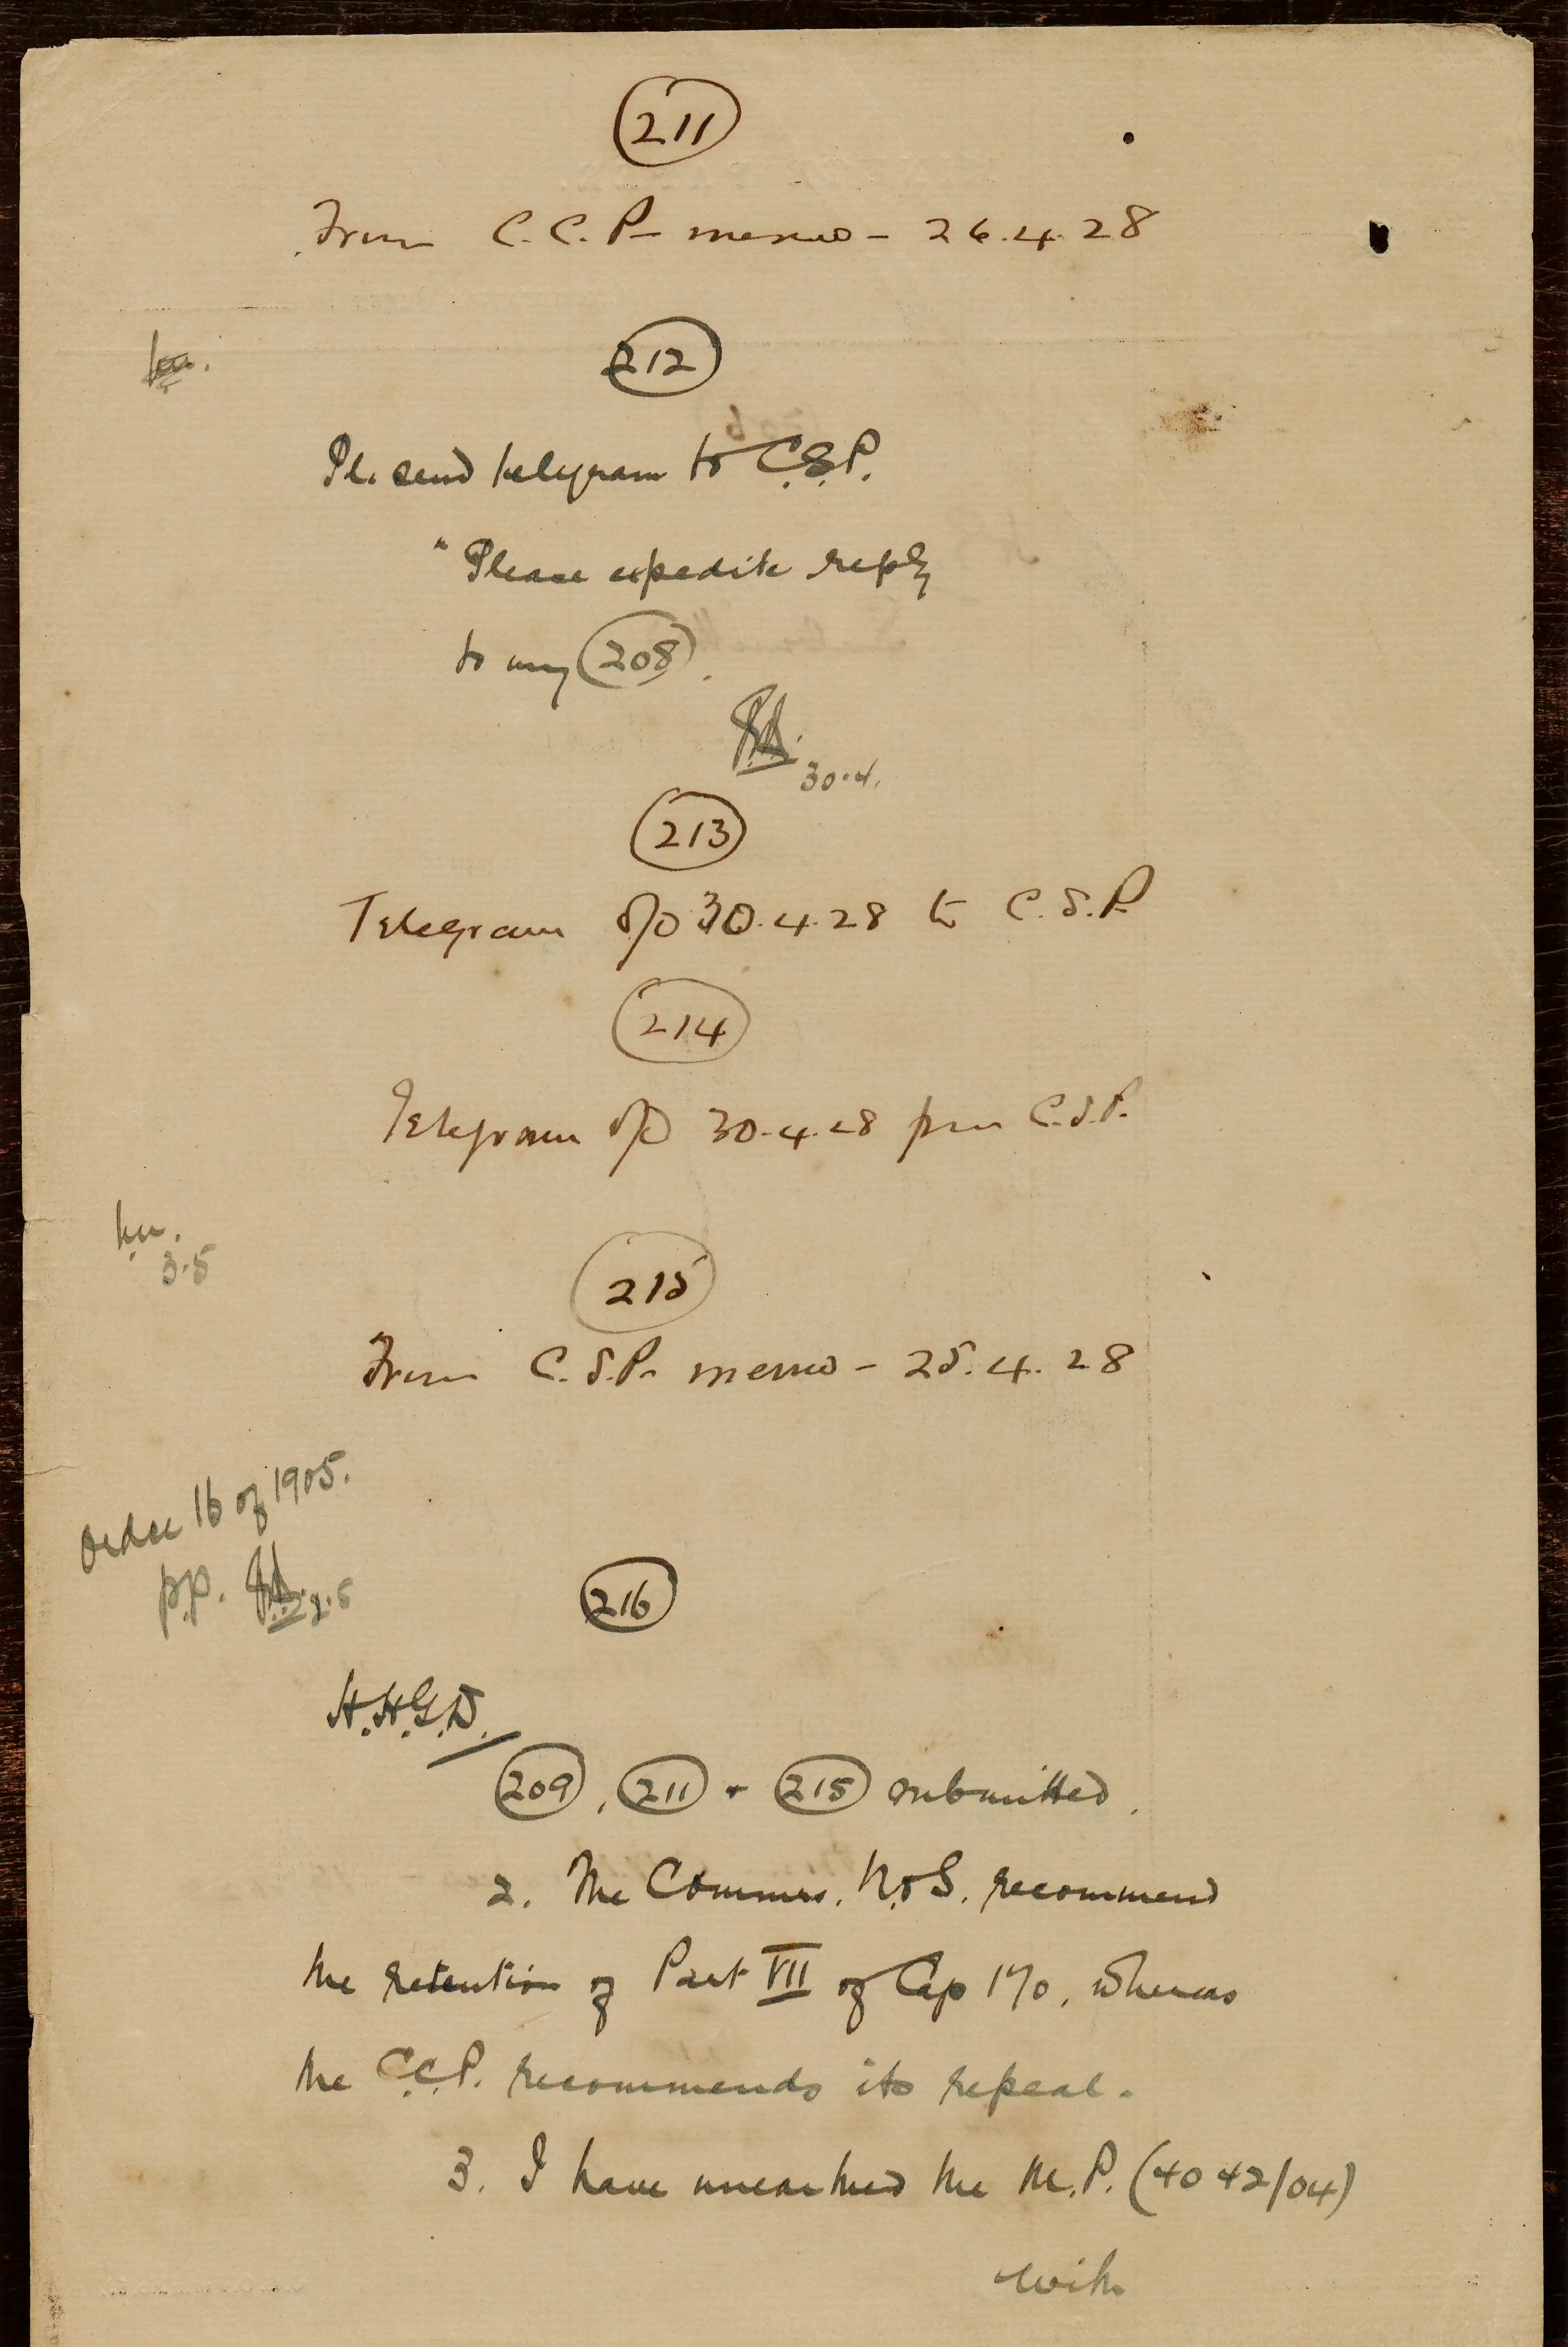 211
From C.C.P. memo - 26.4.28
212
Pl. send telegram to C.S.P.
"Please expedite reply
to my 208.
30.4.
213
Telegram d/d 30.4.28 to C.S.P.
214
Telegram d/d 30.4.28 from C.S.P.
3.5
215
From C.S.P. memo - 25.4.28
Order 16 of 1905.
p.p.
216
H.H.G.D.
209, 211 + 215 submitted.
2. The Commrs. N. & S. recommend
the retention of Part VII of Cap 170, whereas
the C.C.P. recommends its repeal.
3. I have unearthed the M.P. (4042/04)
with